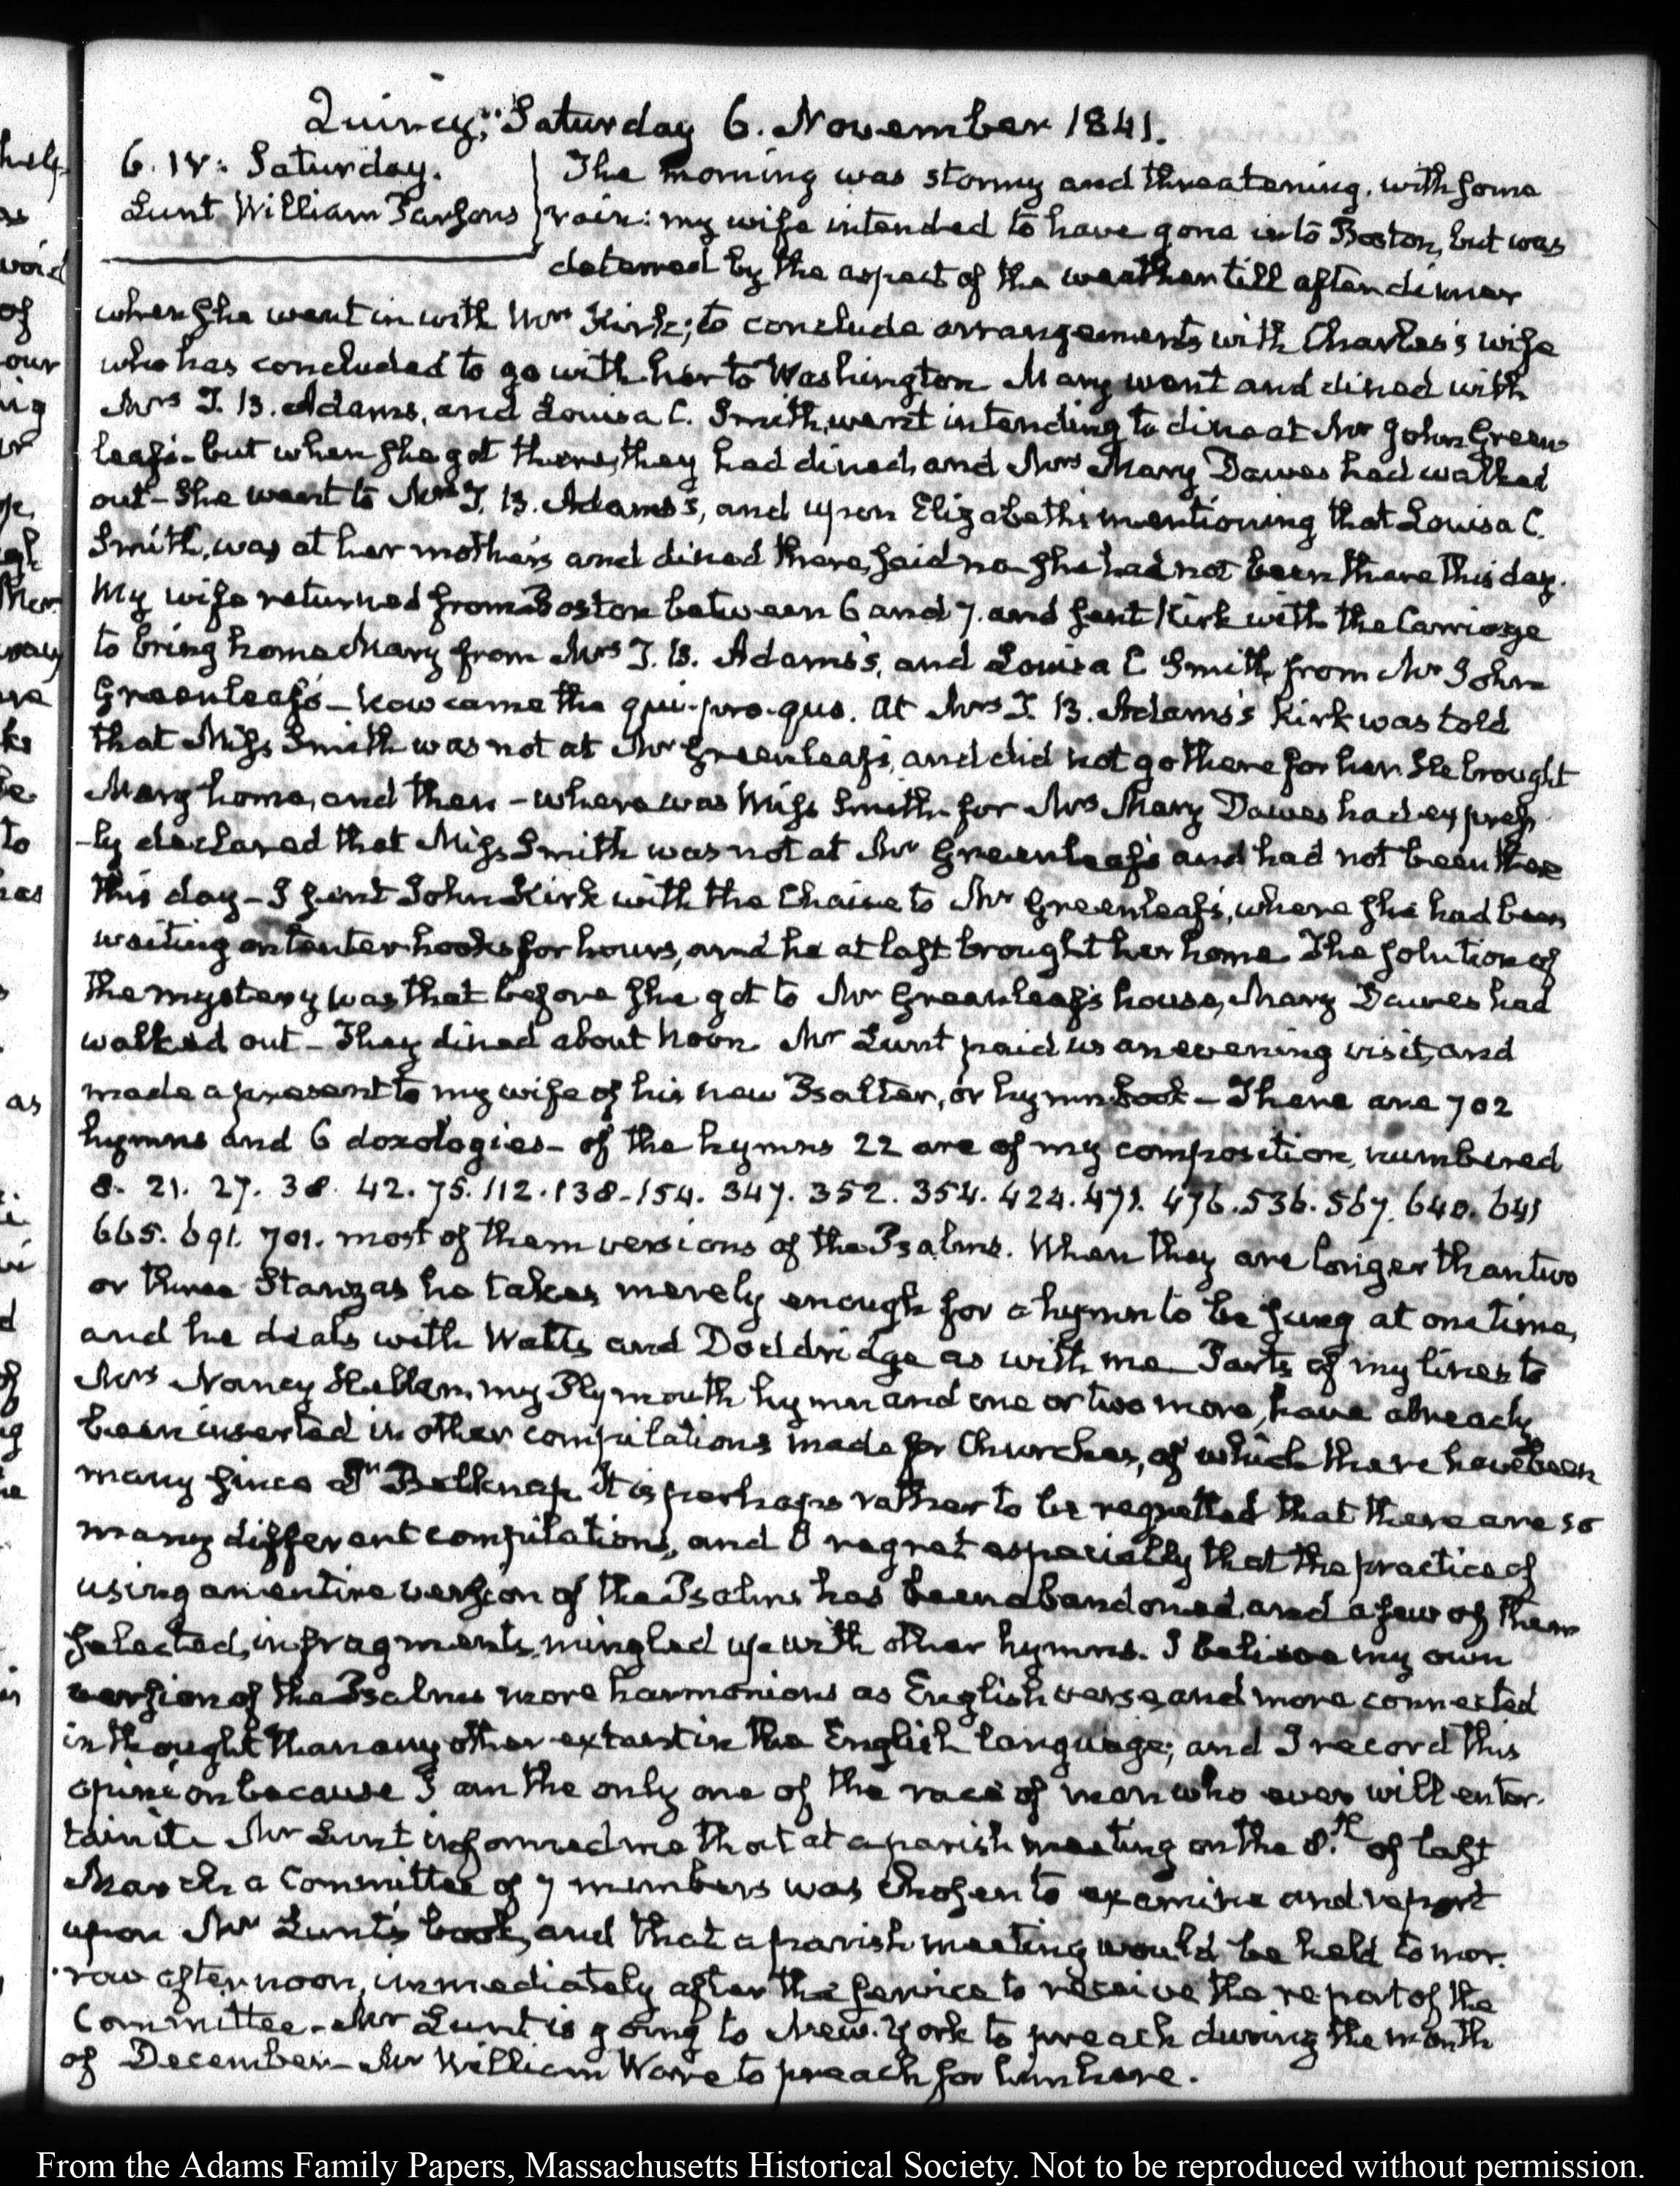 Quincy, Saturday 6. November 1841.
6. IV: Saturday.
Lunt William Parsons
The morning was stormy and threatening, with some
rain: my wife intended to have gone into Boston, but was
deterred by the aspect of the weather till after dinner
when she went in with Mrs Kirk; to conclude arrangements with Charles's wife
who has concluded to go with her to Washington Mary went and dined with
Mrs T. B. Adams, and Louisa C. Smith, went intending to dine at Mr John Green
leaf's- but when she got there, they had dined, and Mrs Mary Dawes had walked
out- She went to Mrs T. B. Adams's, and upon Elizabeth's mentioning that Louisa C.
Smith, was at her mother's and dined there, said no she had not been there this day.
My wife returned from Boston between 6 and 7. and sent Kirk with the Carriage
to bring home Mary from Mrs T. B. Adams's, and Louisa C Smith from Mr John
Greenleaf's- Now came the qui-pro-quo. At Mrs T. B. Adams's Kirk was told
that Miss Smith was not at Mr Greenleaf's, and did not go there for her. He brought
Mary home, and then - where was Miss Smith for Mrs Mary Dawes had express
-ly declared that Miss Smith was not at Mr Greenleaf's and had not been there
this day- I sent John Kirk with the Chaise to Mr Greenleaf's, where she had been
waiting on tenter hooks for hours, and he at last brought her home. The solution of
the mystery was that before she got to Mr Greenleaf's house, Mary Dawes had
walked out- They dined about noon. Mr Lunt paid us an evening visit, and
made a present to my wife of his new Psalter, or hymn book- There are 702
hymns and 6 doxologies- of the hymns 22 are of my composition, numbered
8. 21. 27. 38. 42. 75. 112. 138. 154. 347. 352. 354. 424. 471. 476. 536. 567. 640. 641
665. 691. 701. most of them versions of the Psalms. When they are longer than two
or three Stanzas he takes merely enough for a hymn to be sung at one time,
and he deals with Watts and Doddridge as with me Parts of my lines to
Mrs Nancy Hellen, my Plymouth hymn and one or two more, have already
been inserted in other compilations made for Churches, of which there have been
many since Dr Belknap. It is perhaps rather to be regretted that there are so
many different compilations, and I regret especially that the practice of
using an entire version of the Psalms has been abandoned, and a few of them
selected, in fragments, mingled up with other hymns. I believe my own
version of the Psalms more harmonious as English verse, and more connected
in thought than any other extant in the English language; and I record this
opinion because I am the only one of the race of man who ever will enter-
tain it. Mr Lunt informed me that at a parish meeting on the 8th. of last
March a Committee of 7 members was chosen to examine and report
upon Mr Lunt's book, and that a parish meeting would be held tomor-
row afternoon, immediately after the service to receive the report of the
Committee- Mr Lunt is going to New-York to preach during the month
of December- Mr William Ware to preach for him here.
From the Adams Family Papers, Massachusetts Historical Society. Not to be reproduced without permission.